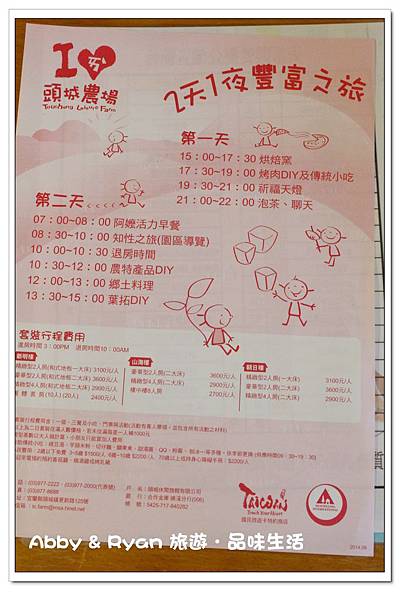 I ㄞ
頭城農場
Toucheng Leisure Farm
2天1夜豐富之旅
第一天
15：00~17：30 烘焙窯
17：30~19：00 烤肉DIY及傳統小吃
19：30~21：00 祈福天燈
21：00~22：00 泡茶、聊天
第二天
07：00~08：00 阿嬤活力早餐
08：30~10：00 知性之旅(園區導覽)
10：00~10：30 退房時間
10：30~12：00 農特產品DIY
12：00~13：00 鄉土料理
13：30~15：00 葉拓DIY
套裝行程費用
進房時間3：00PM 退房時間10：00AM
山海樓
朝日樓
精緻型2人房(和式地板一大床) 3100元/人
豪華型2人房(和式地板二大床) 3600元/人
精緻型4人房(和式地板二大床) 2900元/人
(10人) (20人) 2400元/人
豪華型2人房(二大床) 3600元/人
精緻型4人房(二大床) 2900元/人
樓中樓8人房 2700元/人
精緻型2人房(一大床) 3100元/人
豪華型2人房(二大床) 3600元/人
精緻型4人房(二大床) 2900元/人
(03)977-2222
(03)977-8686
TAIWAN
Touch Your Heart
國民旅遊卡特約商店
2014.06
Abby & Ryan 旅遊・品味生活